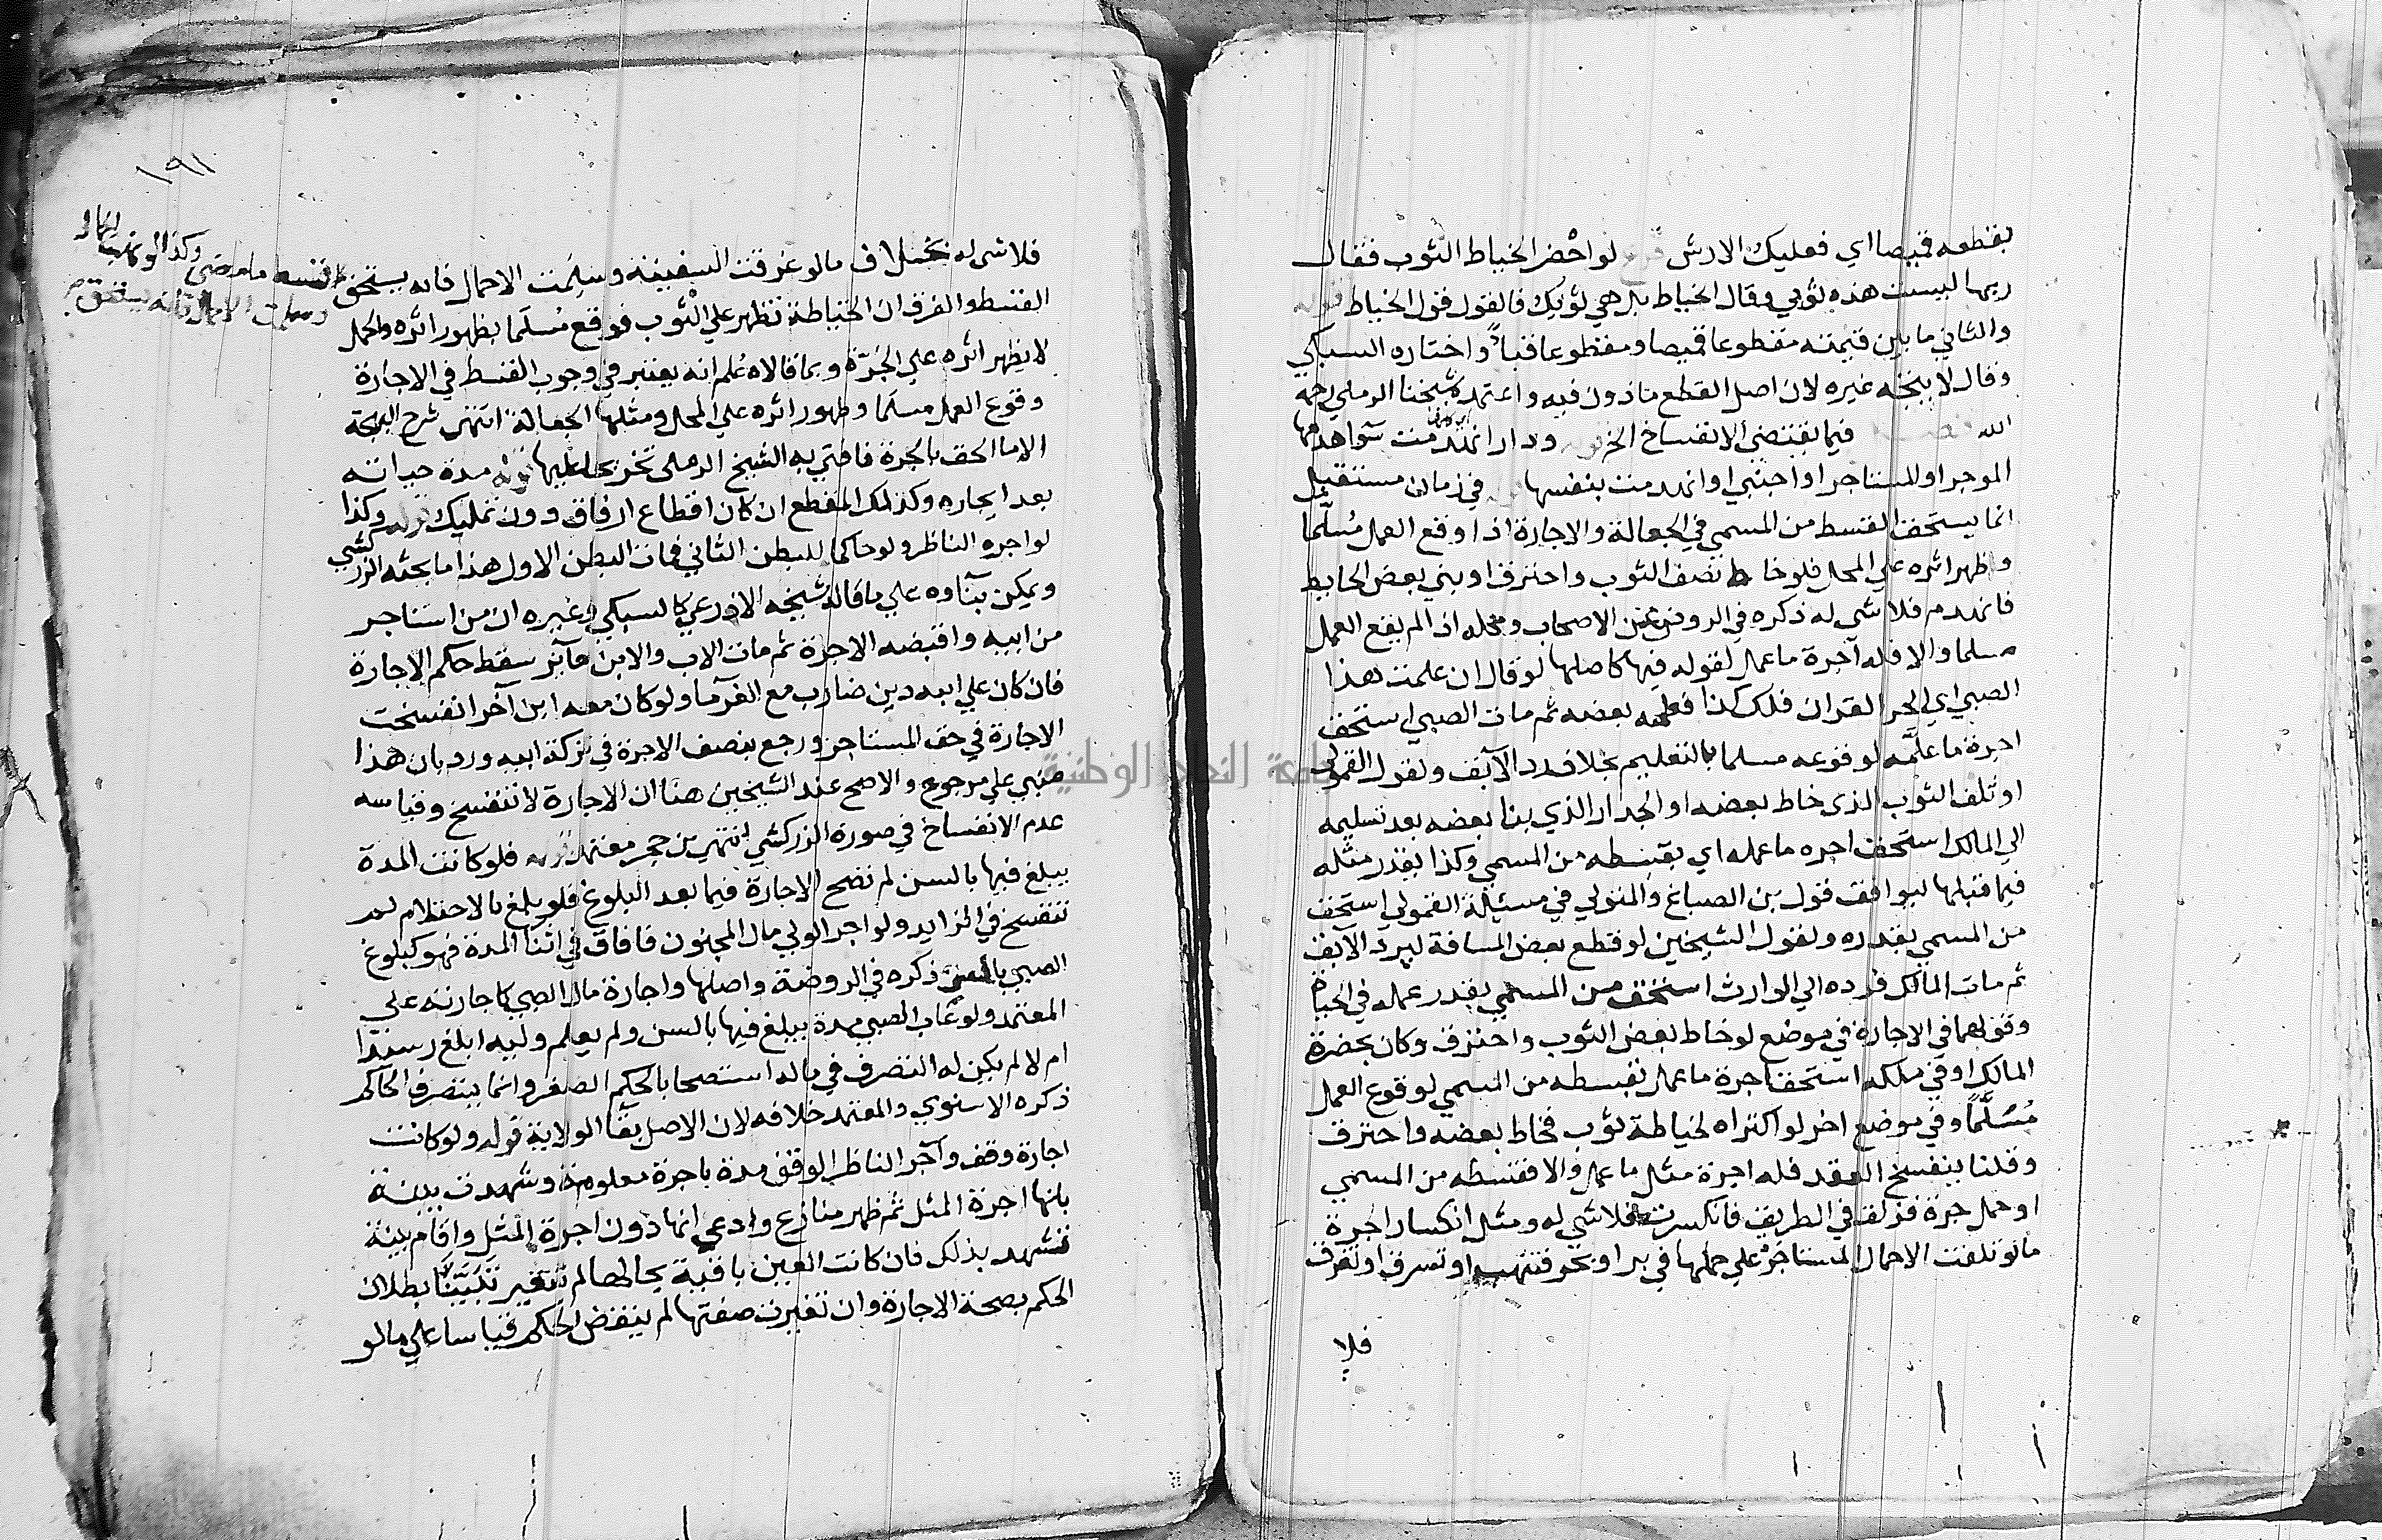 بقطعه قميصا اي فعليك الارش فرع لو احضر الخياط الثوب فقال
ربها ليست هذه ثوبي وقال الخياط بل هي ثوبك فالقول قول الخياط قوله
والثاني ما بين قيمته مقطوعا قميصا ومقطوعا قباً واختاره السبكي
وقال لا يتجه غيره لان اصل القطع ماذون فيه واعتمده شيخنا الرملي رحمه
الله فيما يقتضي الانفساخ الخ ودار انهدمت سواهدمها
الموجر او المستاجر او اجنبي او انهدمت بنفسها في زمان مستقبل
انما يستحق القسط من المسمي في الجعالة والاجارة اذا وقع العمل مُسلّما
وظهر اثره علي المحل فلو خاط نصف الثوب واحترق او بني بعض الحايط
فانهدم فلا شي له ذكره في الروض عن الاصحاب ومحله اذا لم يقع العمل
مسلما والا فله اجرة ما عمل لقوله فيها كاصلها لو قال ان علمت هذا
الصبي اي الحر القران فلك كذا فعلمه بعضه ثم مات الصبي استحق
اجرة ما علَّمه لوقوعه مسلما بالتعليم بخلاف رد الآبق ولقول القمولي
او تلف الثوب الذي خاط بعضه او الجدار الذي بنا بعضه بعد تسليمه
الي المالك استحق اجره ما عمله اي بقسطه من المسمي وكذا بقدر مثله
فيما قبلها ليوافق قول بن الصباغ والمتولي في مسئلة القمولي استحق
من المسمي بقدره ولقول الشيخين لو قطع بعض المسافة ليرد الآبق
ثم مات المالك فرده الي الوارث استحق من المسمي بقدر عمله في الحياة
وقولهما في الاجارة في موضع لو خاط بعض الثوب واحترق وكان بحضرة
المالك او في ملكه استحق اجرة ما عمل بقسطه من المسمي لوقوع العمل
مُسَلَّمًا وفي موضع اخر لو اكتراه لخياطة ثوب فخاط بعضه واحترق
وقلنا ينفسخ العقد فله اجرة مثل ما عمل والا فقسطه من المسمي
او حمل جرة فزلق في الطريق فانكسرت فلا شي له ومثل انكسار الجرة
مالو تلفت الاحمال المستاجَرُ علي حملها في بر او بحر فنهب او تسرق او تغرق
فلا
١٩١
فلا شي له بخلاف مالو غرقت السفينة وسلمت الاحمال فانه يستحق
القسط والفرق ان الخياطة تظهر علي الثوب فوقع مُسلَما بظهور اثره والحمل
لا يظهر اثره علي الجَرّة وبما قالاه عُلم انه يعتبر في وجوب القسط في الاجارة
وقوع العمل مسلَما وظهور اثره علي المحل ومثلها الجعالة انتهي شرح البهجة
الا ما الحق بالجرة فافتي به الشيخ الرملي تخريجا عليها قوله مدة حياته
بعد ايجاره وكذلك المقطع ان كان اقطاع ارفاق دون تمليك قوله وكذا
لو اجره الناظر ولو حاكما للبطن الثاني فمات البطن الاول هذا ما بحثه الزركشي
ويمكن بناوه علي ما قاله شيخه الاذرعي كالسبكي وغيره ان من استاجر
من ابيه واقبضه الاجرة ثم مات الاب والابن حآئز سقط حكم الاجارة
فان كان علي ابيه دين ضارب مع الغرما ولو كان معه ابن آخر انفسخت
الاجارة في حق المستاجر ورجع بنصف الاجرة في تركة ابيه ورد بان هذا
مبني علي مرجوح والاصح عند الشيخين هنا ان الاجارة لا تنفسخ وقياسه
عدم الانفساخ في صورة الزركشي انتهي بن حجر معتمد قوله فلو كانت المدة
يبلغ فيها بالسن لم تصح الاجارة فيما بعد البلوغ فلو بلغ بالاحتلام لم
تنفسخ في الزايد ولو اجر الولي مال المجنون فافاق في اثنا المدة فهو كبلوغ
الصبي بالسن ذكره في الروضة واصلها واجارة مال الصبي كاجارته علي
المعتمد ولو غاب الصبي مدة يبلغ فيها بالسن ولم يعلم وليه ابلغ رشيدا
ام لا لم يكن له التصرف في ماله استصحابا لحكم الصغر وانما يتصرف الحاكم
ذكره الاسنوي والمعتمد خلافه لان الاصل بقآ الولاية قوله ولو كانت
اجارة وقف وآجر الناظر الوقف مدة باجرة معلومة وشهدت بينة
بانها اجرة المثل ثم ظهر منازع وادعي انها دون اجرة المثل واقام بينة
تشهد بذلك فان كانت العين باقية بحالها لم تتغير تَبَيَّنَّا بطلان
الحكم بصحة الاجارة وان تغيرت صفتها لم ينقض الحكم قياسا علي مالو